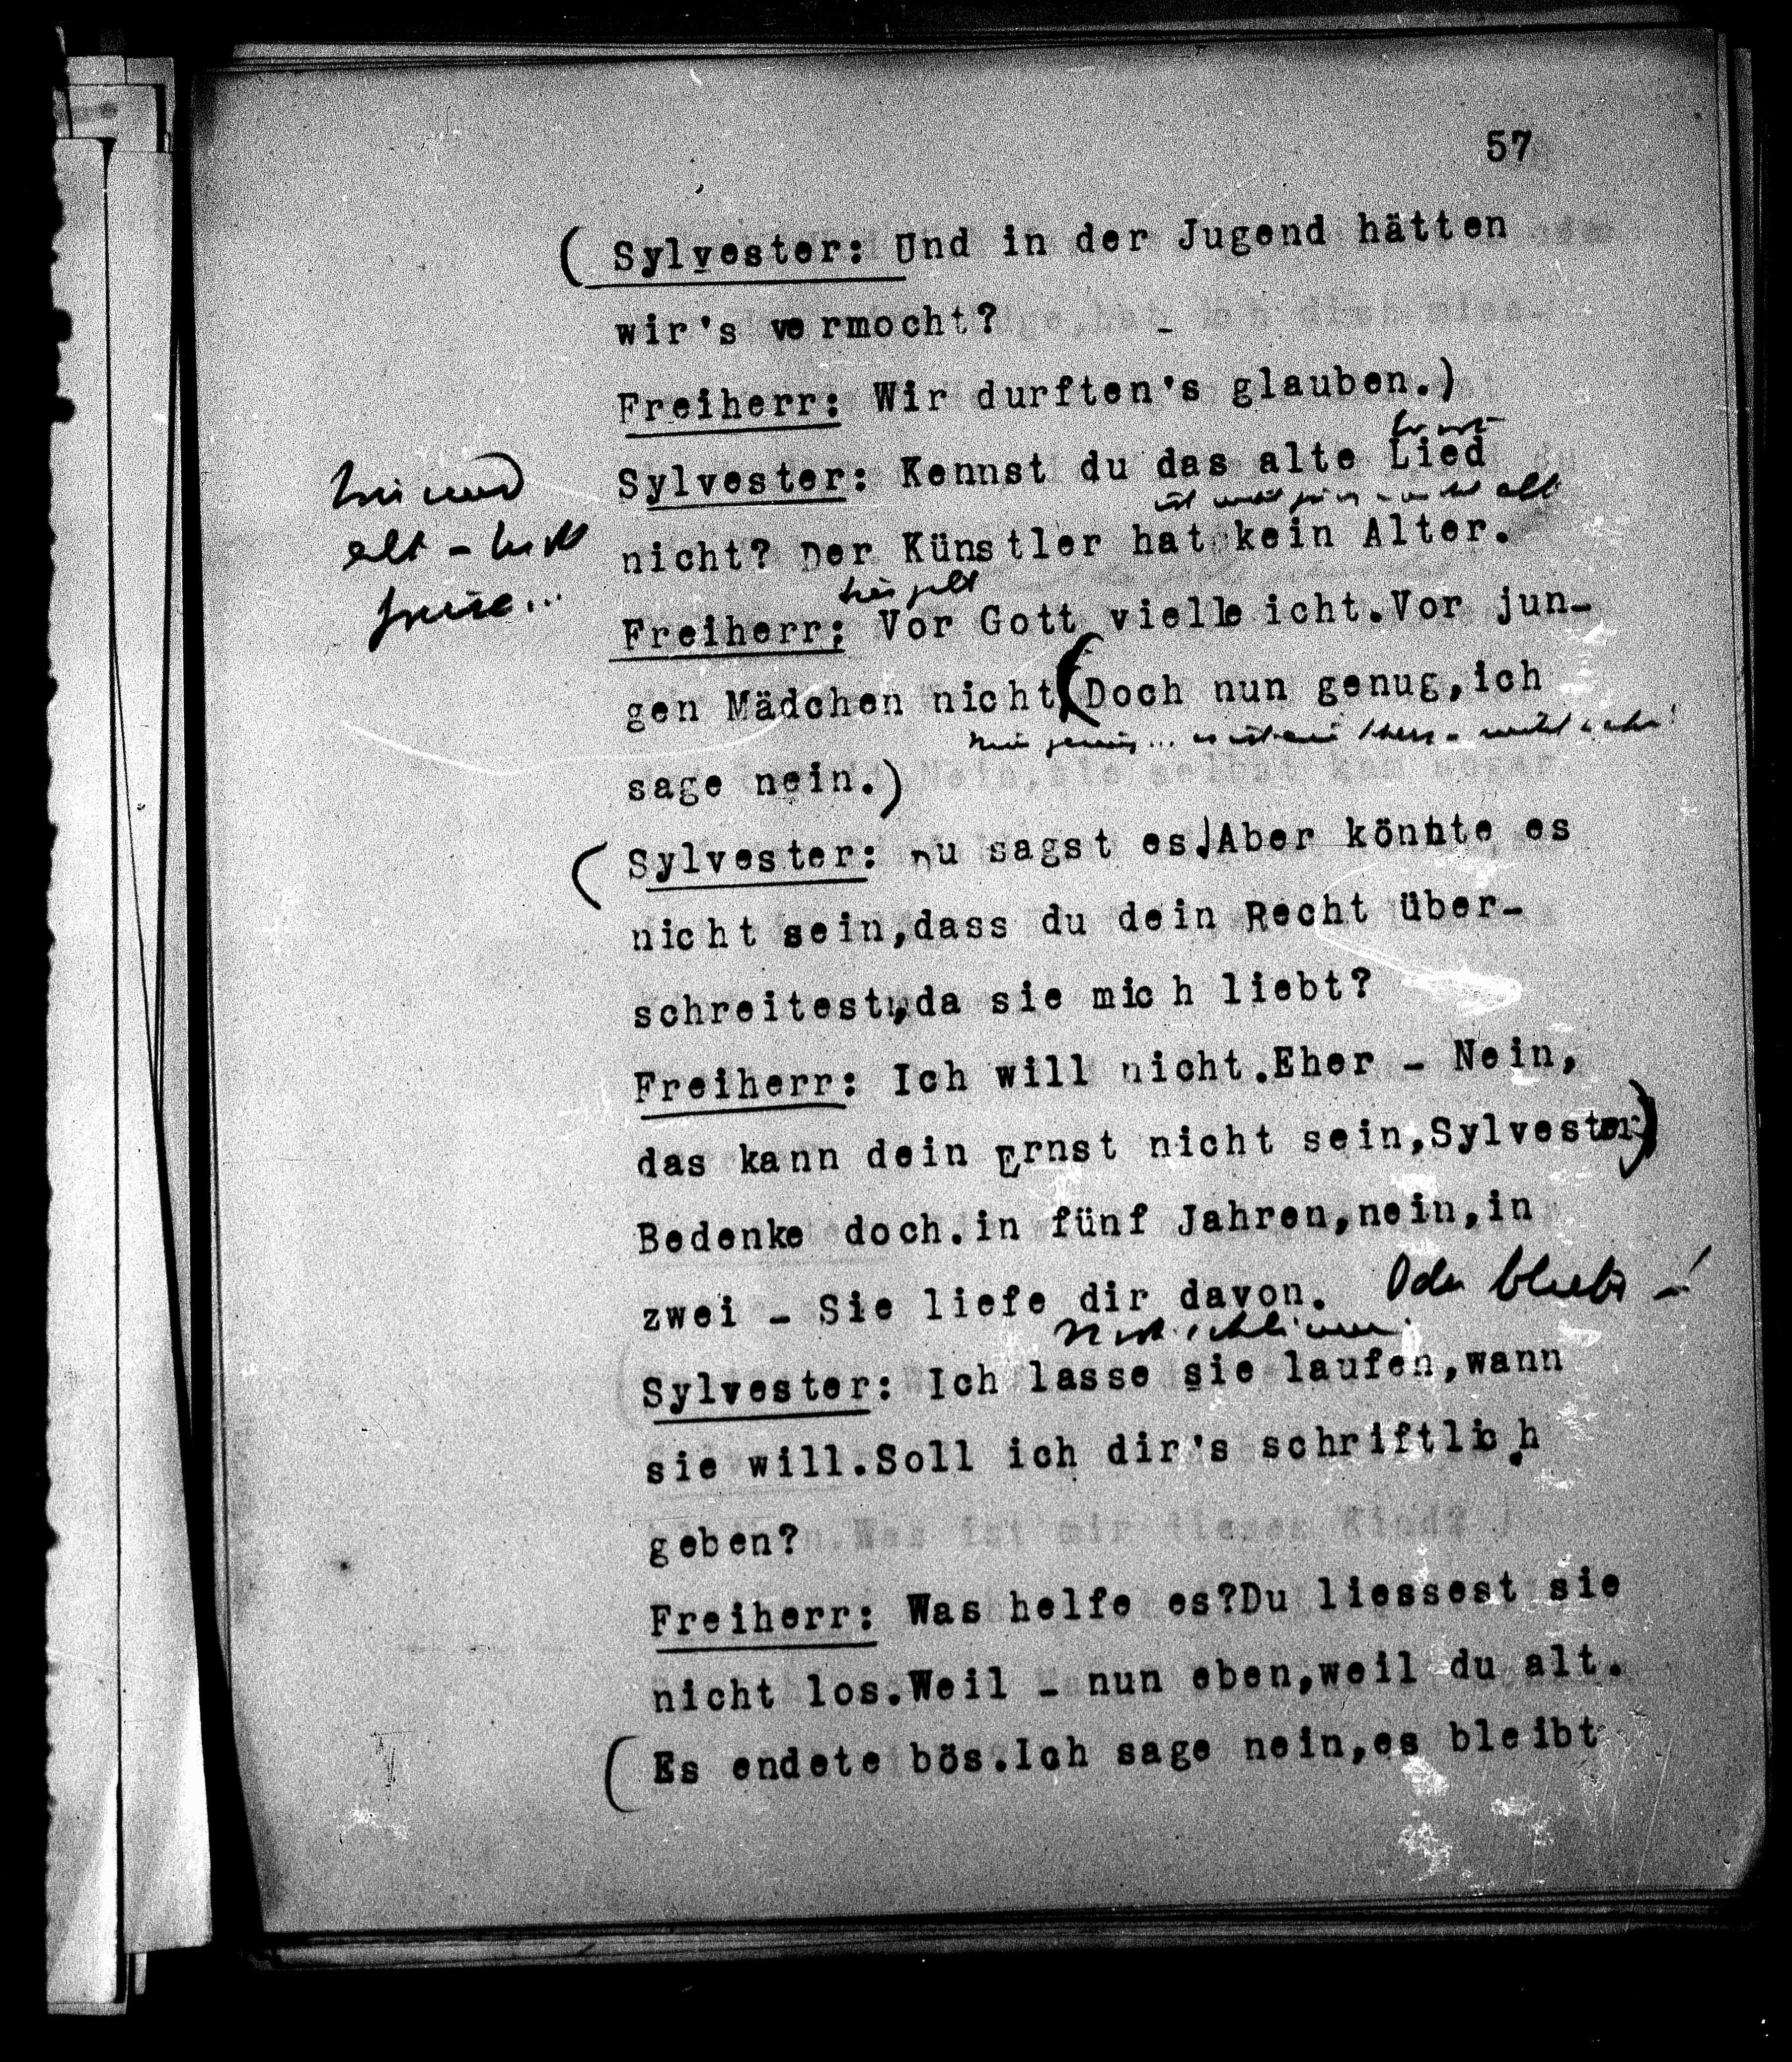 57
(Sylvester: Und in der Jugend hätten
wir's vermocht?
Freiherr: Wir durften's glauben.)
Sylvester: Kennst du das alte Lied
alt
nicht? Der Künstler hat kein Alter.
alt -
Freiherr: Vor Gott vielleicht.Vor jun-
gen Mädchen nicht(Doch nun genug,ich
sage nein.)
(Sylvester: Du sagst es.)Aber könnte es
nicht sein,dass du dein Recht über-
schreitest,da sie mich liebt?
Freiherr: Ich will nicht.Eher - Nein,
das kann dein Ernst nicht sein,Sylvester)
Bedenke doch.in fünf Jahren,nein,in
zwei - Sie liefe dir davon. Oder bliebe -!
Sylvester: Ich lasse sie laufen,wann
sie will.Soll ich dir's schriftlich
geben?
Freiherr: Was helfe es?Du liessest sie
nicht los.Weil - nun eben,weil du alt.
(Es endete bös.Ich sage nein,es bleibt